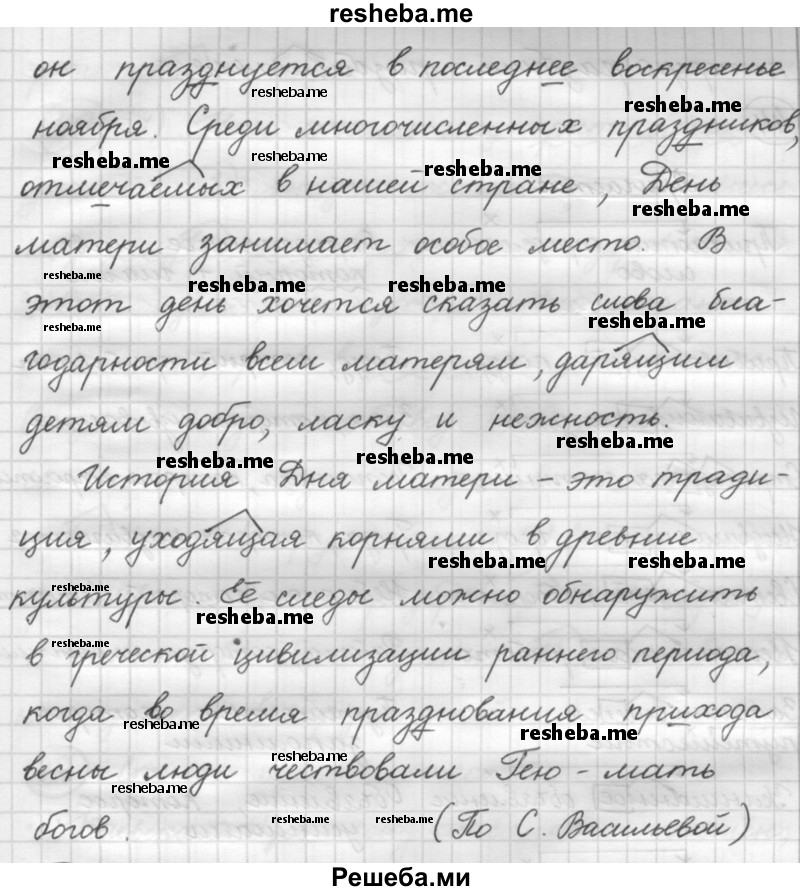 resheba.me
он празднуется в последнее воскресенье
resheba.me
resheba.me
ноября. Среди многочисленных праздников,
resheba.me
resheba.me
resheba.me
отмечаемых в нашей стране, День
resheba.me
матери занимает особое место. В
resheba.me
resheba.me
resheba.me
этот день хочется сказать слова бла-
resheba.me
resheba.me
годарности всем матерям, дарящим
детям добро, ласку и нежность.
resheba.me
resheba.me
resheba.me
История Дня матери – это тради-
ция, уходящая корнями в древние
resheba.me
resheba.me
resheba.me
культуры Её следы можно обнаружить
resheba.me
resheba.me
в греческой цивилизации раннего периода,
когда во время празднования прихода
resheba.me
resheba.me
resheba.me
весны люди чествовали Гею – мать
resheba.me
богов. (По С. Васильевой)
resheba.me
resheba.me
Решеба.ми